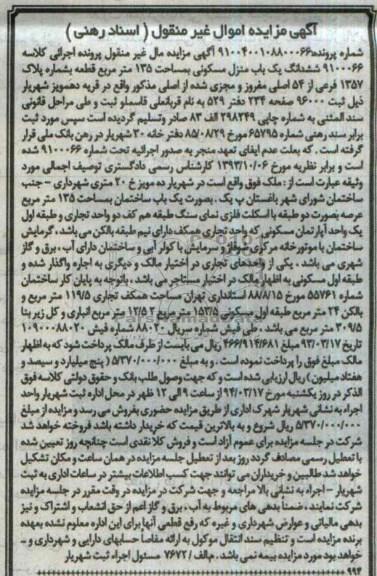 آگهی مزایده اموال غیر منقول ( اسناد رهنی )
شماره پرونده:۹۱۰۰۴۰۰۱۰۸۸۰۰۰۶۶ آگهی مزایده مال غیر منقول پرونده اجرائی کلاسه
۹۱۰۰۰۶۶ ششدانگ یک باب منزل مسکونی بمساحت ۱۳۵ متر مربع قطعه بشماره پلاک
۱۳۵۷ فرعی از ۵۴ اصلی مفروز و مجزی شده از اصلی مذکور واقع در قریه دهمویز شهریار
ذیل ثبت ۹۶۰۰۰ صفحه ۲۳۴ دفتر ۵۲۹ به نام قربانعلی قاسملو ثبت و طی مراحل قانونی
سند المثنی به شماره چاپی ۲۹۸۲۴۹ الف ۸۳ صادر وتسلیم گردیده است سپس مورد ثبت
برابر سند رهنی شماره ۶۵۷۹۵ مورخ ۸۵/۰۸/۲۹ دفتر خانه ۳۰ شهریار در رهن بانک ملی قرار
گرفته است . که بعلت عدم ایفای تعهد منجر به صدور اجرائیه تحت شماره ۹۱۰۰۰۶۶ شده
است و برابر نظریه مورخ ۱۳۹۳/۱۰/۰۶ کارشناس رسمی دادگستری توصیف اجمالی مورد
وثیقه عبارت است از : ملک فوق واقع است در شهریار ده مویز خ ۲۰ متری شهرداری – جنب
ساختمان شورای شهر باغستان پ یک . بصورت یک باب ساختمان بمساحت ۱۳۵ متر مربع
عرصه بصورت دو طبقه با اسکلت فلزی نمای سنگ طبقه هم کف دو واحد تجاری و طبقه اول
یک واحد آپارتمان مسکونی که واحد تجاری همکف دارای نیم طبقه بالکن می باشد ، گرمایش
ساختمان با موتورخانه مرکزی شوفاژ و سرمایش با کولر آبی و ساختمان دارای آب ، برق و گاز
شهری می باشد . یکی از واحدهای تجاری در اختیار مالک و دیگری به اجاره واگذار شده و
طبقه اول مسکونی به اظهار مالک در اختیار مستاجر می باشد ، باتوجه به پایان کار ساختمان
شماره ۵۵۷۶۱ مورخ ۸۸/۸/۱۵ استانداری تهران مساحت همکف تجاری ۱۱۹/۵ متر مربع و
بالکن ۲۴ متر مربع طبقه اول مسکونی ۱۵۳/۵ متر مربع ۱۲/۵ متر مربع انباری و کل زیر بنا
۳۰۹/۵ متر مربع می باشد . طی فیش شماره سریال ۸۸۰۲۰ شماره فیش ۱۰۹۰۰۰۸۸۰۲۰
تاریخ ۹۳/۰۲/۱۷ مبلغ ۴۶۶/۹۱۴/۶۸۱ ریال می بایست از طرف مالک پرداخت شود که به اظهار
مالک مبلغ فوق را پرداخت نموده است . و به مبلغ ۵/۳۷۰/۰۰۰/۰۰۰ ( پنج میلیارد و سیصد و
هفتاد میلیون ) ریال ارزیابی شده است و که جهت وصول طلب بانک و حقوق دولتی کلاسه فوق
الذکر در روز یکشنبه مورخ ۹۴/۰۳/۱۷ از ساعت ۹ الی ۱۲ ظهر در محل اداره ثبت شهریار واحد
اجراء به نشانی شهریار شهرک اداری از طریق مزایده حضوری بفروش می رسد و مزایده از مبلغ
۵/۳۷۰/۰۰۰/۰۰۰ ریال شروع و به بالاترین قیمت که خریدار داشته باشد فروخته خواهد شد
شرکت در جلسه مزایده برای عموم آزاد است و فروش کلا نقدی است چنانچه روز تعیین شده
با تعطیل رسمی مصادف گردد روز بعد از تعطیل جلسه مزایده در همان ساعت و مکان تشکیل
خواهد شد طالبین و خریداران می توانند جهت کسب اطلاعات بیشتر در ساعات اداری به ثبت
شهریار – اجراء به نشانی بالا مراجعه و جهت شرکت در مزایده در وقت مقرر در جلسه مزایده
شرکت نمایند ، ضمناً بدهی های مربوط به آب ، برق و گاز اعم از حق انشعاب و اشتراک و نیز
بدهی مالیاتی و عوارض شهرداری و غیره که رفع قطعی آنها برای این اداره معلوم نشده بعهده
برنده مزایده است و تنظیم سند انتقال موکول به ارائه مفاصا حسابهای دارایی و شهرداری و –
خواهد بود مورد مزایده بیمه نمی باشد . م/الف / ۷۶۷۲ مسئول اجراء ثبت شهریار
۹۹۴